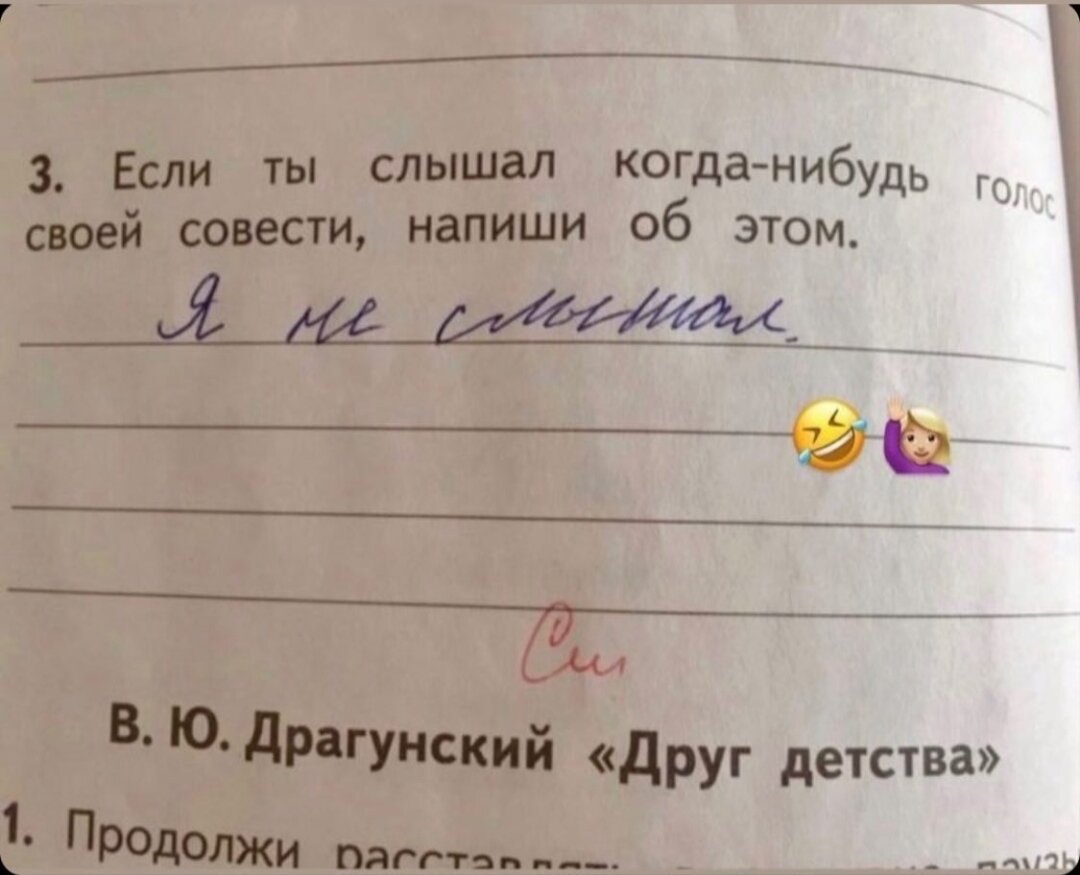 3. Если ты слышал когда-нибудь голос
своей совести, напиши об этом.
Я не слышал.
См
В. Ю. Драгунский «Друг детства»
1. Продолжи